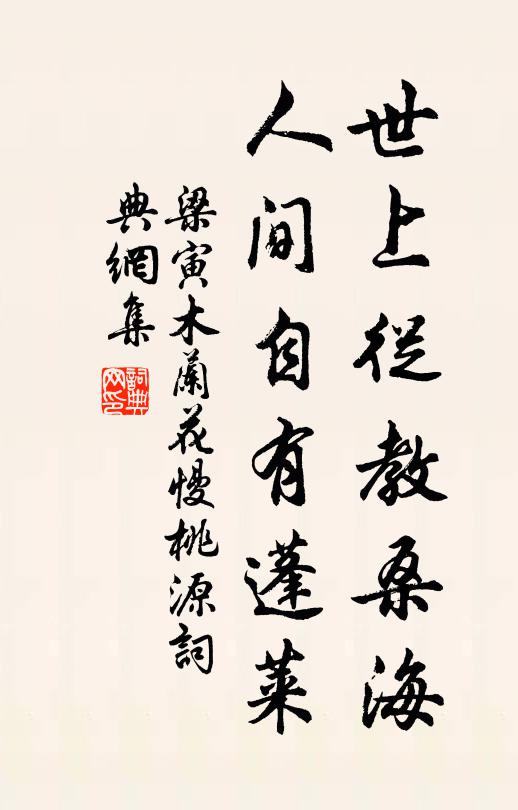 世上從教桑海
人间自有蓬萊
梁寅木蘭花慢桃源詞
典網集
詞典
网印